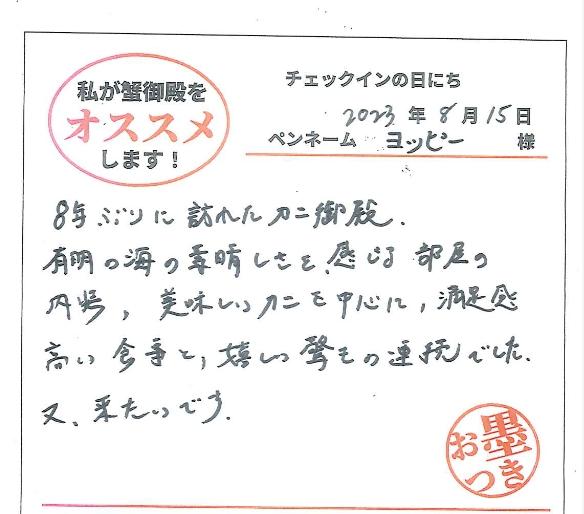 私が蟹御殿を
オススメ
します！
チェックインの日にち
2023 年 8 月 15 日
ペンネーム ヨッピー 様
8年ぶりに訪れたカニ御殿.
有明の海の素晴しさを、感じる部屋の
内装, 美味しいカニを中心に, 満足感
高い食事と, 嬉しい驚きの連続でした.
又、来たいです.
お墨
つき